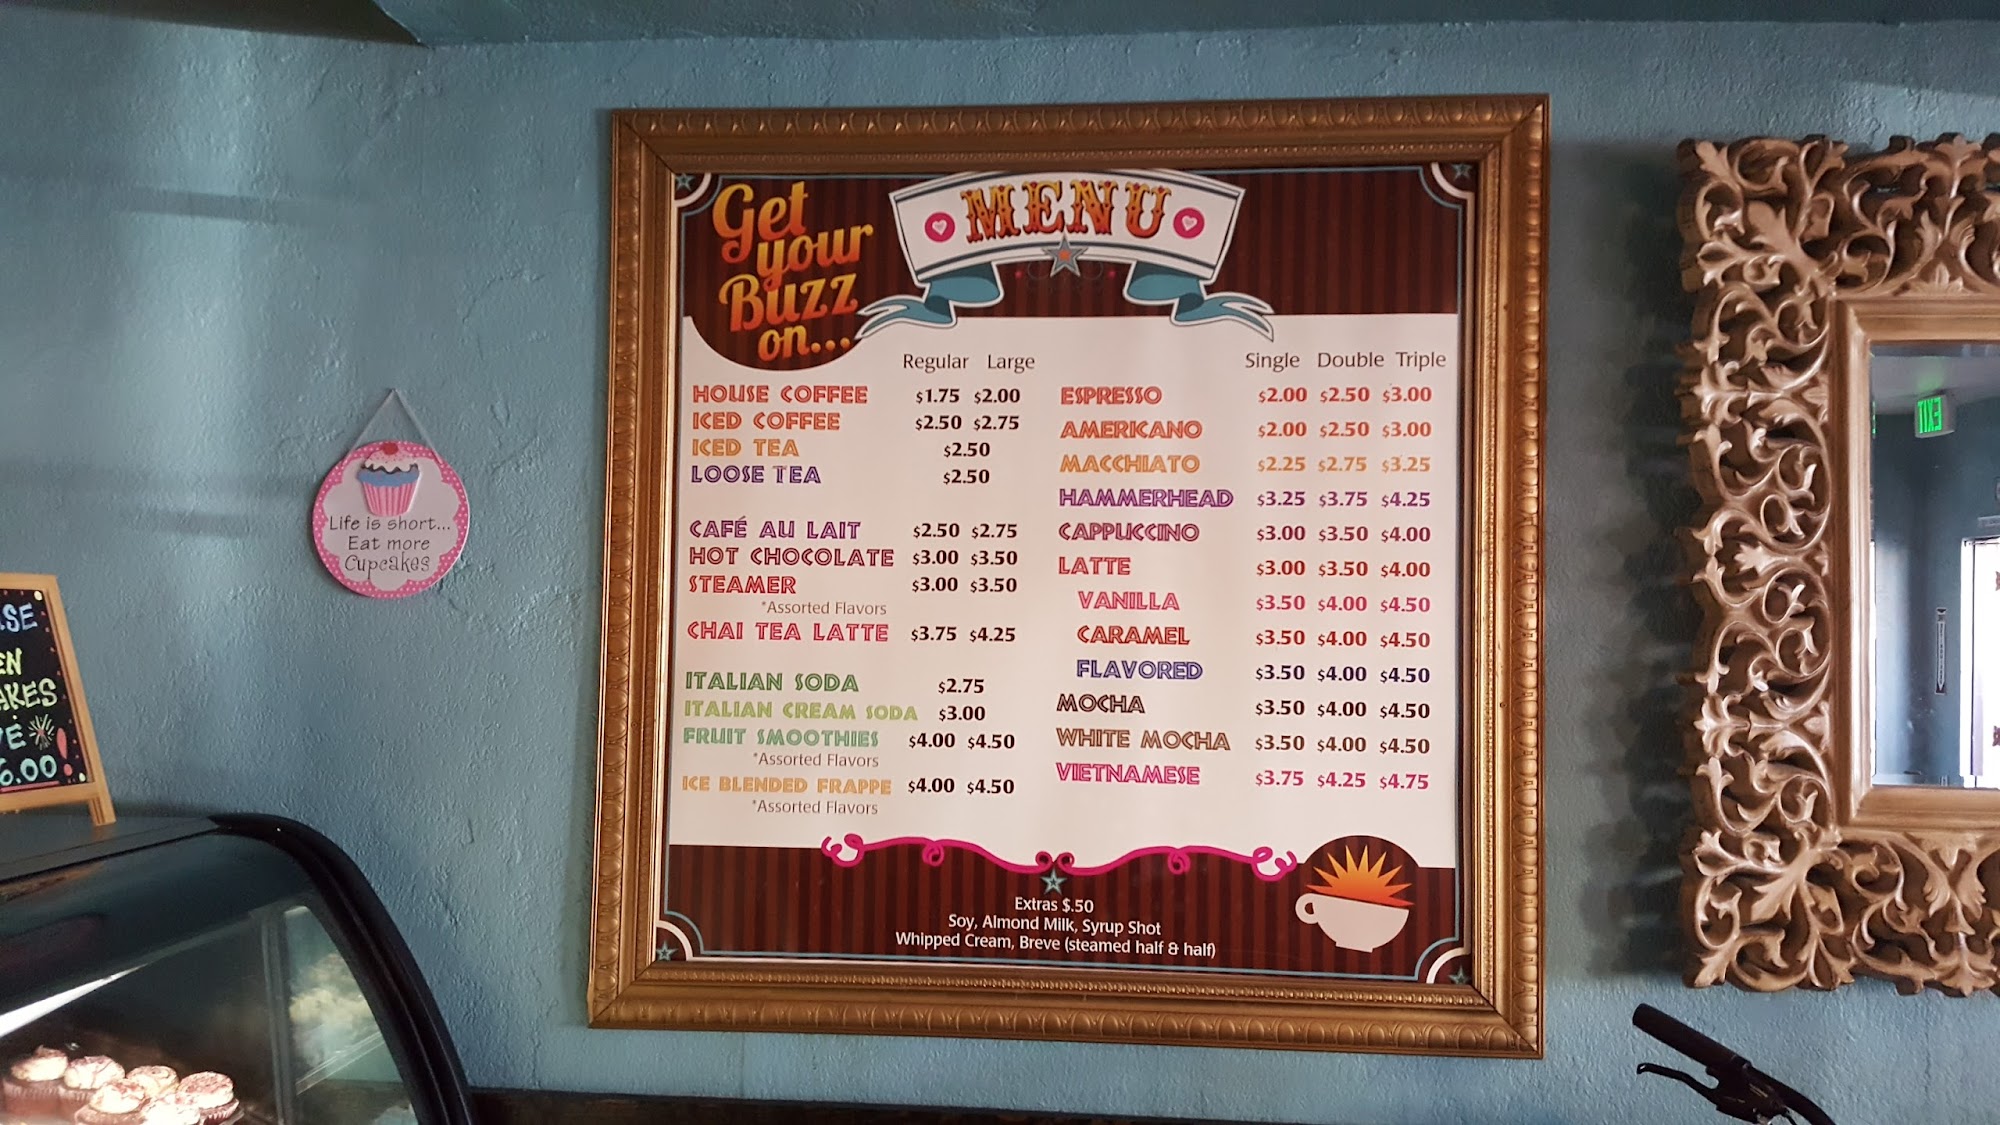 Get
your
Buzz
on...
MENU
Regular Large
HOUSE COFFEE $1.75 $2.00
ICED COFFEE $2.50 $2.75
ICED TEA $2.50
LOOSE TEA $2.50
CAFÉ AU LAIT $2.50 $2.75
HOT CHOCOLATE $3.00 $3.50
STEAMER $3.00 $3.50
*Assorted Flavors
CHAI TEA LATTE $3.75 $4.25
ITALIAN SODA $2.75
ITALIAN CREAM SODA $3.00
FRUIT SMOOTHIES $4.00 $4.50
*Assorted Flavors
ICE BLENDED FRAPPE $4.00 $4.50
*Assorted Flavors
Single Double Triple
ESPRESSO $2.00 $2.50 $3.00
AMERICANO $2.00 $2.50 $3.00
MACCHIATO $2.25 $2.75 $3.25
HAMMERHEAD $3.25 $3.75 $4.25
CAPPUCCINO $3.00 $3.50 $4.00
LATTE $3.00 $3.50 $4.00
VANILLA $3.50 $4.00 $4.50
CARAMEL $3.50 $4.00 $4.50
FLAVORED $3.50 $4.00 $4.50
MOCHA $3.50 $4.00 $4.50
WHITE MOCHA $3.50 $4.00 $4.50
VIETNAMESE $3.75 $4.25 $4.75
Extras $.50
Soy, Almond Milk, Syrup Shot
Whipped Cream, Breve (steamed half & half)
Life is short...
Eat more
Cupcakes
EXIT